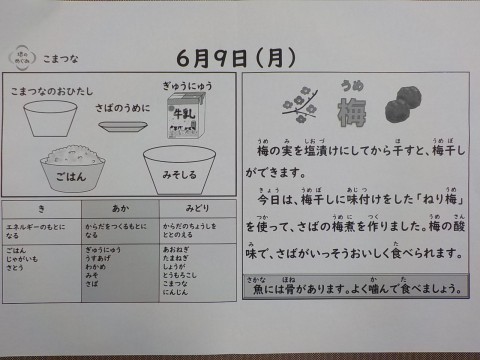 こまつな
6月9日(月)
こまつなのおひたし
ぎゅうにゅう
さばのうめに
牛乳
ごはん
みそしる
き
あか
みどり
エネルギーのもとに
なる
からだをつくるもとに
なる
からだのちょうしを
ととのえる
ごはん
じゃがいも
さとう
ぎゅうにゅう
うすあげ
わかめ
みそ
さば
あおねぎ
たまねぎ
しょうが
とうもろこし
こまつな
にんじん
うめ
梅
梅の実を塩漬けにしてから干すと、梅干し
ができます。
今日は、梅干しに味付けをした「ねり梅」
を使って、さばの梅煮を作りました。梅の酸
味で、さばがいっそうおいしく食べられます。
魚には骨があります。よく噛んで食べましょう。